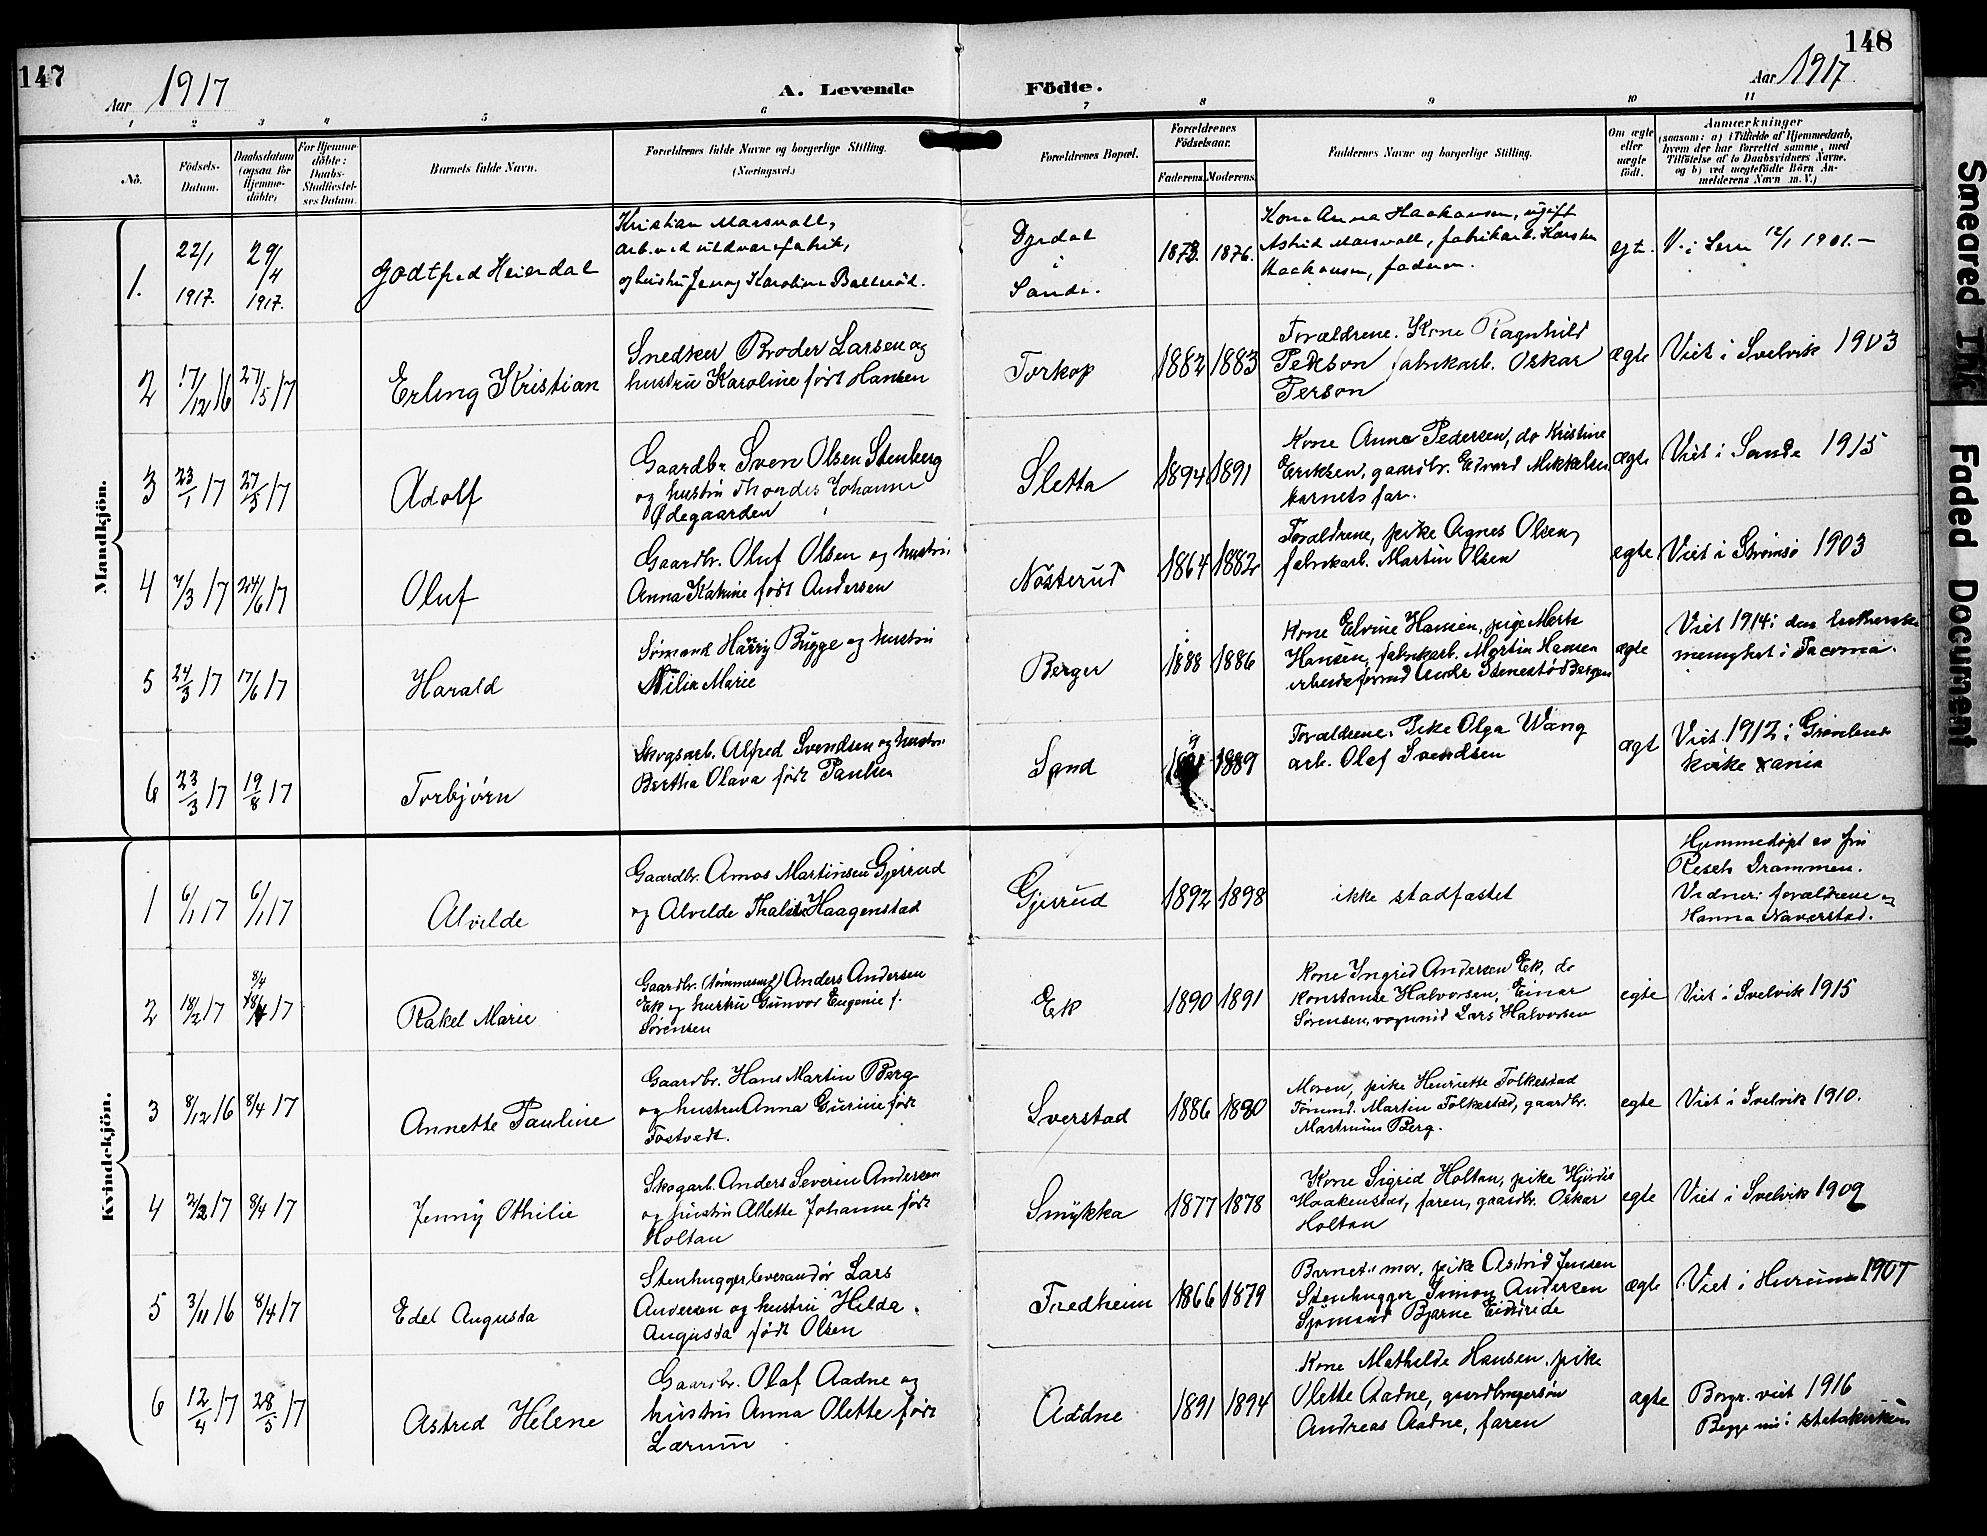 147
Aar 1917
A. Levende
Födte.
148
Aar 1917
1 2 3 4 5 6 7 8 9 10 11
No.
Födsels-
Datum.
Daabsdatum
(ogsaa for
Hjemme-
döbte)
For Hjemme-
döbte:
Daabs-
Stadfæstel-
ses Datum.
Barnets fulde Navn.
Forældrenes fulde Navne og borgerlige Stilling.
(Næringsvei.)
Forældrenes Bopæl.
Forældrenes
Födselsaar.
Faderens.
Moderens.
Faddernes Navne og borgerlige Stilling.
Om ægte
eller
uægte
födt.
Anmærkninger
(saasom: a) i Tilfælde af Hjemmedaab,
hvem der har forrettet samme, med
Tilföielse af to Daabsvidners Navne.
og b) ved uægtefödte Börn An-
melderens Navn m. V.)
Mandkjön.
1.
22/1
1917.
29/4
1917.
Godtfred Heierdal
Kristian Marsvall,
arb. ved uldvarefabrik,
og hustru Jenny Karoline Ballerød.
Dyrdal
i
Sande.
1873. 1876.
Kone Anna Haakonsen, ugift
Astrid Marsvall, fabrikarb. Karsten
Haakonsen, faderen.
egt.
V. i Sem 12/1 1901.
2
17/12 16
27/5 17
Erling Kristian
Snedker Broder Larsen og
hustru Karoline født Hansen
Torkop
1882 1883
Forældrene. Kone Ragnhild
Person fabrikarb. Oskar
Person
ægte
Viet i Svelvik 1903
3
23/1 17
27/5 17
Adolf
Gaardbr. Sven Olsen Stenberg
og hustru Thondis Johanne
Ødegaarden
Sletta
1894 1891
Kone Anna Pedersen, do Kristine
Eriksen, gaardbr. Edvard Mikkelsen
barnets far.
ægte
Viet i Sande 1915
4
7/3 17
24/6 17
Oluf
Gaardbr. Oluf Olsen og hustru
Anna Katrine født Andersen
Nøsterud
1864 1882
Forældrene, pike Agnes Olsen,
fabrikarb. Martin Olsen
ægte
Viet i Strømsø 1903
5
24/3 17
17/6 17
Harald
Sømand Harry Bugge og hustru
Milia Marie
Berger
1888 1886
Kone Elvine Hansen, pige Marta
Hansen, fabrikarb. Martin Hansen
arbeidsformd Andr. Stenestø Bergen
ægte
Viet 1914 i den lutherske
menighet i Tacoma.
6
23/3 17
19/8 17
Torbjørn
Skogsarb. Alfred Svendsen og hustru
Bertha Olava født Paulsen
Sand
1889
Forældrene. Pike Olga Wang
arb. Olaf Svendsen
ægt
Viet 1912 i Grønlands
kirke Xania
Kvindekjön.
1
6/1 17
6/1 17
Alvilde
Gaardbr. Amos Martinsen Gjerrud
og Alvilde Thalita Haagenstad
Gjerrud
1892 1898
ikke stadfæstet
Hjemmedøpt av fru
Resch Drammen.
Vidner: forældrene og
Hanna Naverstad.
2
18/2 17
8/4
17
Rakel Marie
Gaardbr. (tømmermd) Anders Andersen
Ek og hustru Gunvor Eugenie f.
Sørensen
Ek
1890 1891
Kone Ingrid Andersen Ek, do
Konstanse Halvorsen, Einar
Sørensen, vognmd Lars Halvorsen
egte
Viet i Svelvik 1915
3
8/12 16
8/4 17
Annette Pauline
Gaardbr. Hans Martin Berg
og hustru Anna Gurine født
Tostvedt.
Sverstad
1886 1890
Moren, pike Henriette Folkestad
Tømmd. Martin Folkestad, gaardbr.
Martinius Berg.
egte
Viet i Svelvik 1910.
4
2/2 17
8/4 17
Jenny Othilie
Skogarb. Anders Severin Andersen
og hustru Alette Johanne født
Holtan
Smykka
1877 1878
Kone Sigrid Holtan, pike Hjørdis
Haakenstad, faren, gaardbr. Oskar
Holtan
egte
Viet i Svelvik 1909
5
3/11 16
8/4 17
Edel Augusta
Stenhuggerleverandør Lars
Andersen og hustru Hilda
Augusta født Olsen
Fredheim
1866 1879
Barnets mor, pike Astrid Jensen
Stenhugger Simon Andersen
Sjømand Bjarne Eidsrede
ægte
Viet i Hurum 1907
6
12/4 17
28/5 17
Astrid Helene
Gaardbr. Olaf Aadne og
hustru Anna Olette født
Lærum
Addne
1891 1894
Kone Mathilde Hansen, pike
Olette Aadne, gaardbrugersøn
Andreas Aadne, faren
ægte
Borgr. viet 1916
Begge nu i statskirken
Smeared Ink
Faded Document